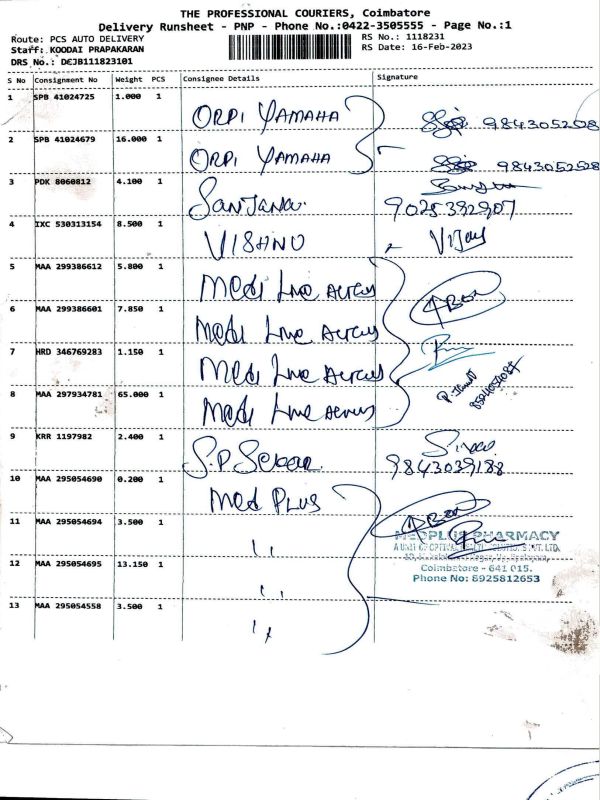 THE PROFESSIONAL COURIERS, Coimbatore
Delivery Runsheet - PNP - Phone No.:0422-3505555 - Page No.:1
Route: PCS AUTO DELIVERY RS No.: 1118231
Staff: KOODAI PRAPAKARAN RS Date: 16-Feb-2023
DRS No.: DEJB111823101
S No Consignment No Weight PCS Consignee Details Signature
1 SPB 41024725 1.000 1 ORPI YAMAHA 9843052508
2 SPB 41024679 16.000 1 ORPI YAMAHA 9843052528
3 PDK 8060812 4.100 1 Sanjana. 9025392907
4 IXC 530313154 8.500 1 VISHNU Vijay
5 MAA 299386612 5.800 1 Medi Live
6 MAA 299386601 7.850 1 Medi Live
7 HRD 346769283 1.150 1 Medi Live
8 MAA 297934781 65.000 1 Medi Live
9 KRR 1197982 2.400 1 S.P Sekar 9843039188
10 MAA 295054690 0.200 1 Med PLUS
11 MAA 295054694 3.500 1 ''
MEDPLUS PHARMACY
12 MAA 295054695 13.150 1 ''
Coimbatore - 641 015.
Phone No: 8925812653
13 MAA 295054558 3.500 1 ''